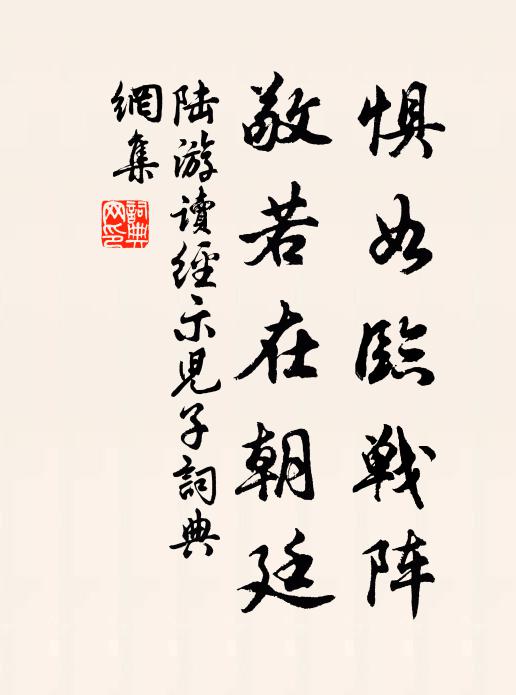 惧如臨戦阵
敬若在朝廷
陆游讀經示兒子詞典
網集
詞典網印